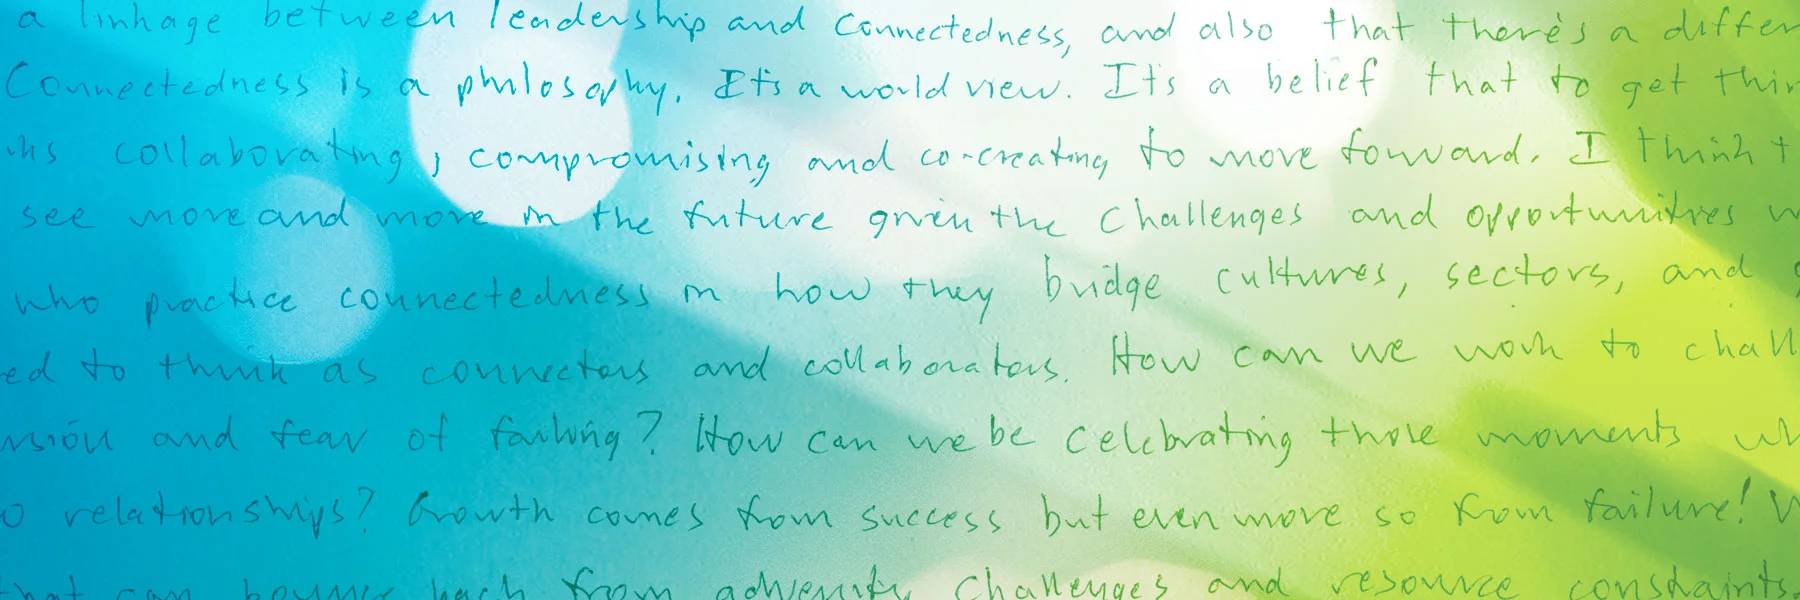 a linkage between leadership and connectedness, and also that there's a differ
Connectedness is a philosophy. It's a world view. It's a belief that to get thin
ns collaborating, compromising and co-creating to move forward. I think t
see more and more in the future given the challenges and opportunities w
who practice connectedness in how they bridge cultures, sectors, and g
ed to think as connectors and collaborators. How can we work to chall
nsion and fear of failing? How can we be celebrating those moments wh
o relationships? Growth comes from success but even more so from failure! W
that can bounce back from adversity challenges and resource constraints.